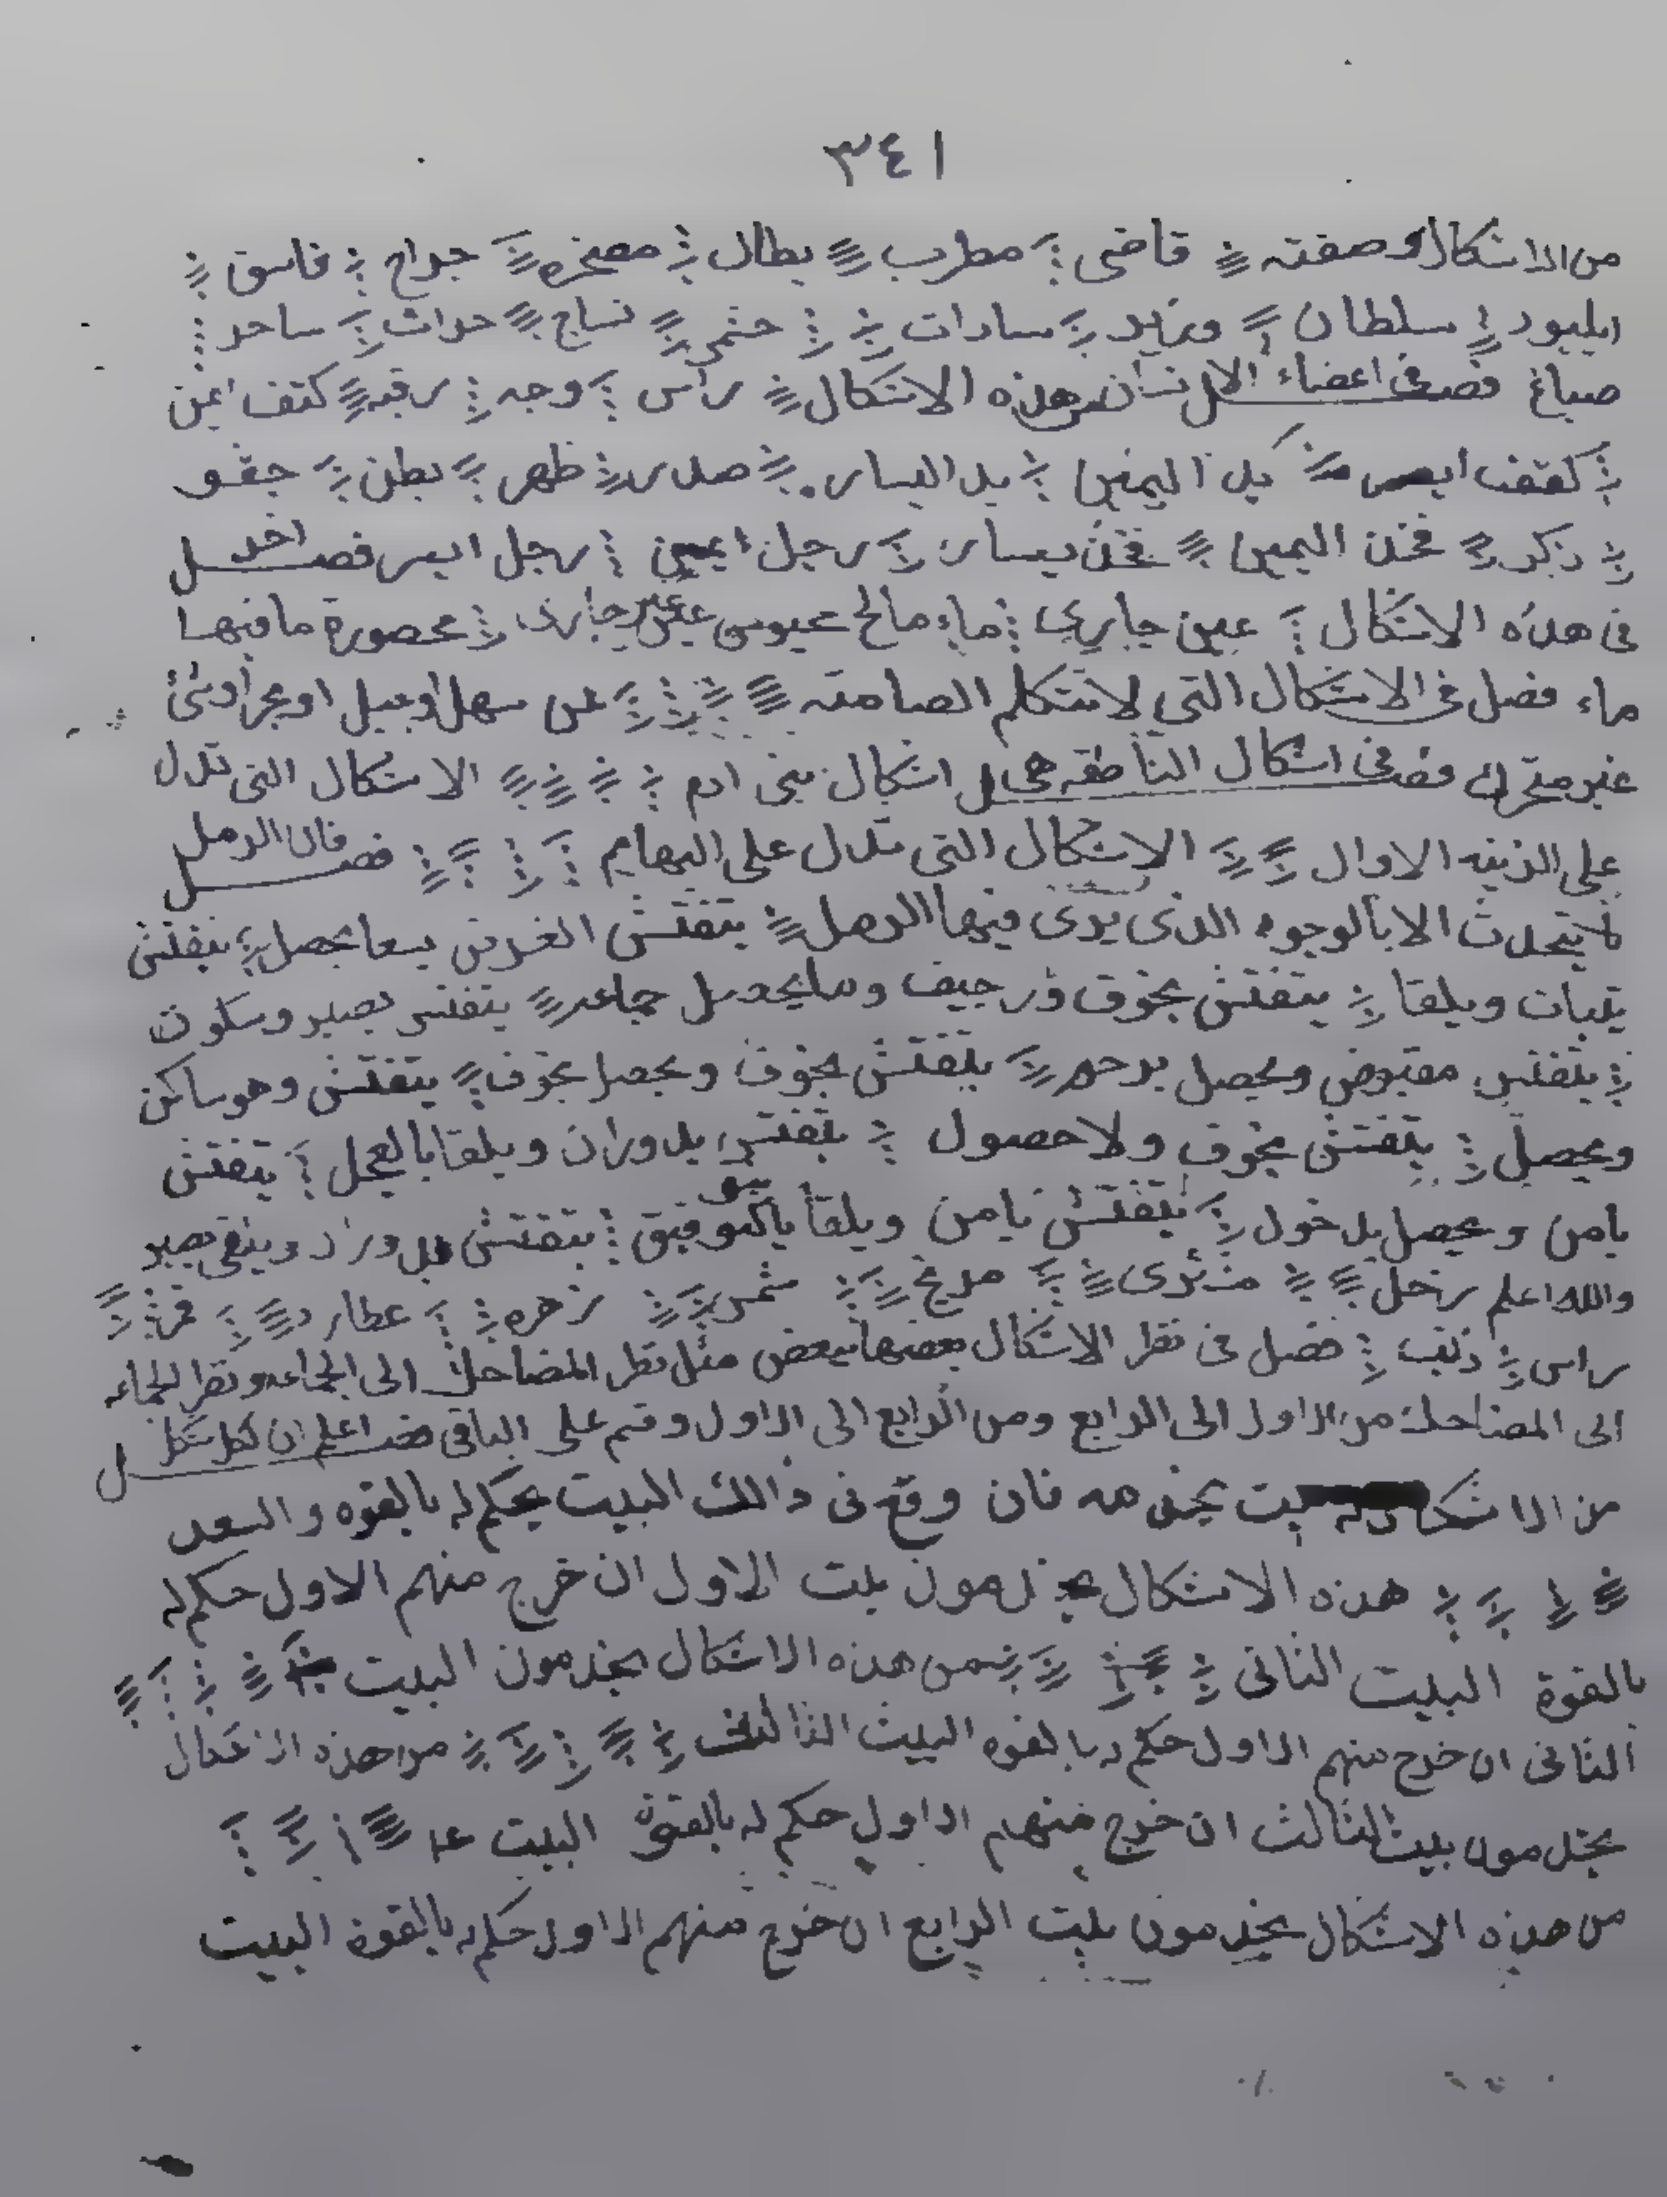 ٣٤١
من الاشكال وصفته قاضى مطرب بطال مسخره جراح فاسق
سلطان وزير سادات نساج حراث ساحر
صباغ فصل فى اعضاء الانسان من هذه الاشكال راس وجه رقبه كتف ايمن
كتف ايسر يد اليمين يد اليسار صدر ظهر بطن
ذكر فخذ اليمين فخذ يسار رجل ايمين رجل ايسر فصل اخر
فى هذه الاشكال عين جاري ماء مالح عين جارى محصورة ما فيها
ماء فصل فى الاشكال التي لا تتكلم الصامته على سهل او جبل او
غير متحرك فصل فى اشكال الناطقه هى اشكال بنى ادم الاشكال التى تدل
على الزينه الاوال الاشكال التى تدل على البهايم فصل فان الرمل
لا يتحدث الا بالوجوه الذى يرى فيها الرمل يتفتش الغرض يحصل يتفتش
ويلقا يتفتش بخوف جماعه يتفتش بصبر وسكون
يتفتش مقبوض ويحصل يتفتش بخوف ويحصل بخوف يتفتش وهو ساكن
ويحصل يتفتش بخوف ولا حصول يتفتش بدوران ويلقا بالعجل يتفتش
بامن ويحصل بدخول يتفتش بامن ويلقا بالتوفيق يتفتش بصبر
والله اعلم زحل مشترى مريخ شمس زهره عطارد قمر
راس ذنب فصل فى نظر الاشكال بعضها ببعض مثل نظر المضاحك الى الجماعه ونظر الجماعه
الى المضاحك من الاول الى الرابع ومن الرابع الى الاول وقم على الباقى فصل اعلم ان لكل شكل
من الاشكال بيت فان وقع فى ذالك البيت يحكم له بالقوه والسعد
هذه الاشكال يخدمون بيت الاول ان خرج منهم الاول حكم له
بالقوة البيت الثانى من هذه الاشكال يخدمون البيت
الثانى ان خرج منهم الاول حكم له بالقوه البيت الثالث من هذه الاشكال
يخدمون بيت الثالث ان خرج منهم الاول حكم له بالقوة البيت
من هذه الاشكال يخدمون بيت الرابع ان خرج منهم الاول حكم له بالقوة البيت